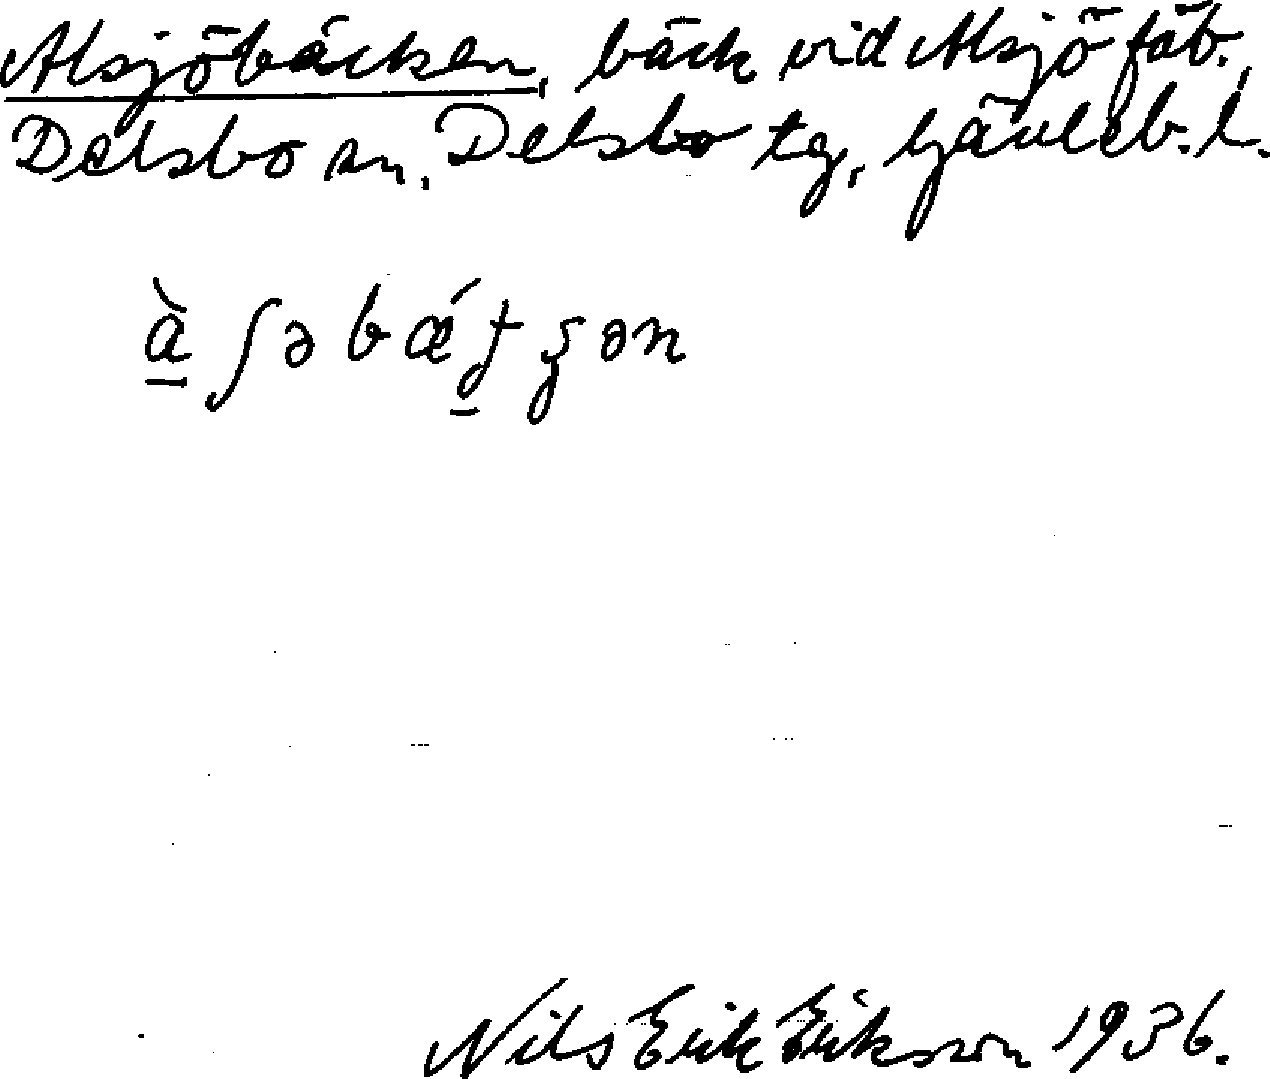 Alsjöbäcken, bäck vid Alsjö fäb.,
Delsbo sn, Delsbo tg, Gävleb. l.
à̱ ʃə bǽ
Nils Erik Eriksson 1936.